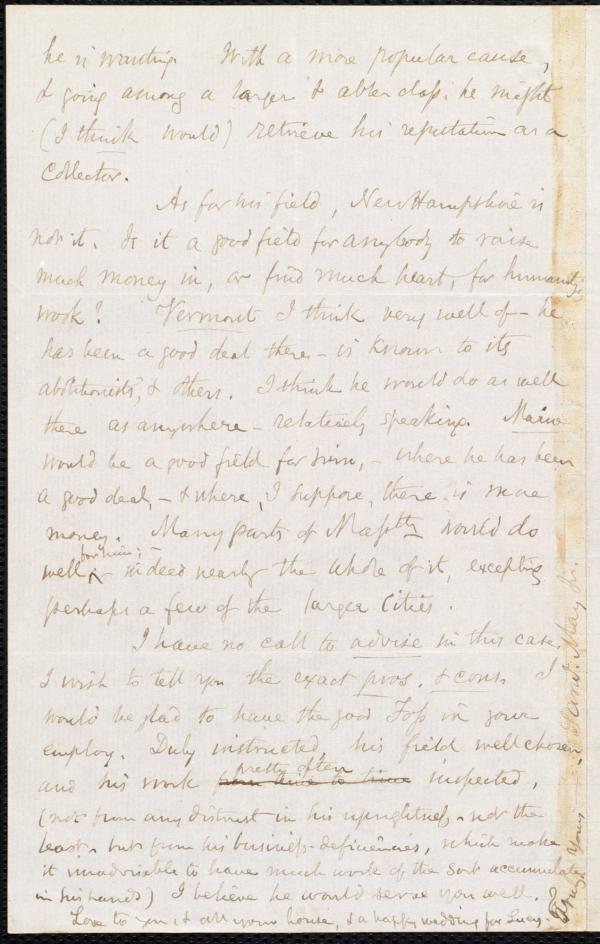 he is wanting. With a more popular cause,
& going among a larger & abler class, he might
(I think would) retrieve his reputation as a
Collector.
As for his field, New Hampshire is
not it. Is it a good field for anybody to raise
much money in, or find much heart, for humanity
work? Vermont I think very well of – he
has been a good deal there – is known to its
abolitionists, & others. I think he would do as well
there as anywhere – relatively speaking. Maine
would be a good field for him, – where he has been
a good deal, – & where, I suppose, there is more
money. Many parts of Massts would do
well for him; – indeed nearly the whole of it, excepting
perhaps a few of the larger Cities.
I have no call to advise in this case.
I wish to tell you the exact pros. & cons. I
would be glad to have the good Foss in your
employ. Duly instructed, his field well chosen,
and his work from time to time pretty often inspected,
(not from any distrust in his uprightness, not the
least, but from his business-deficiencies, which make
it inadvisable to have much work of the sort accumulate
in his hands) I believe he would serve you well.
Love to you & all your house, & a happy wedding for Lucy.
Yours Saml. May, Jr.